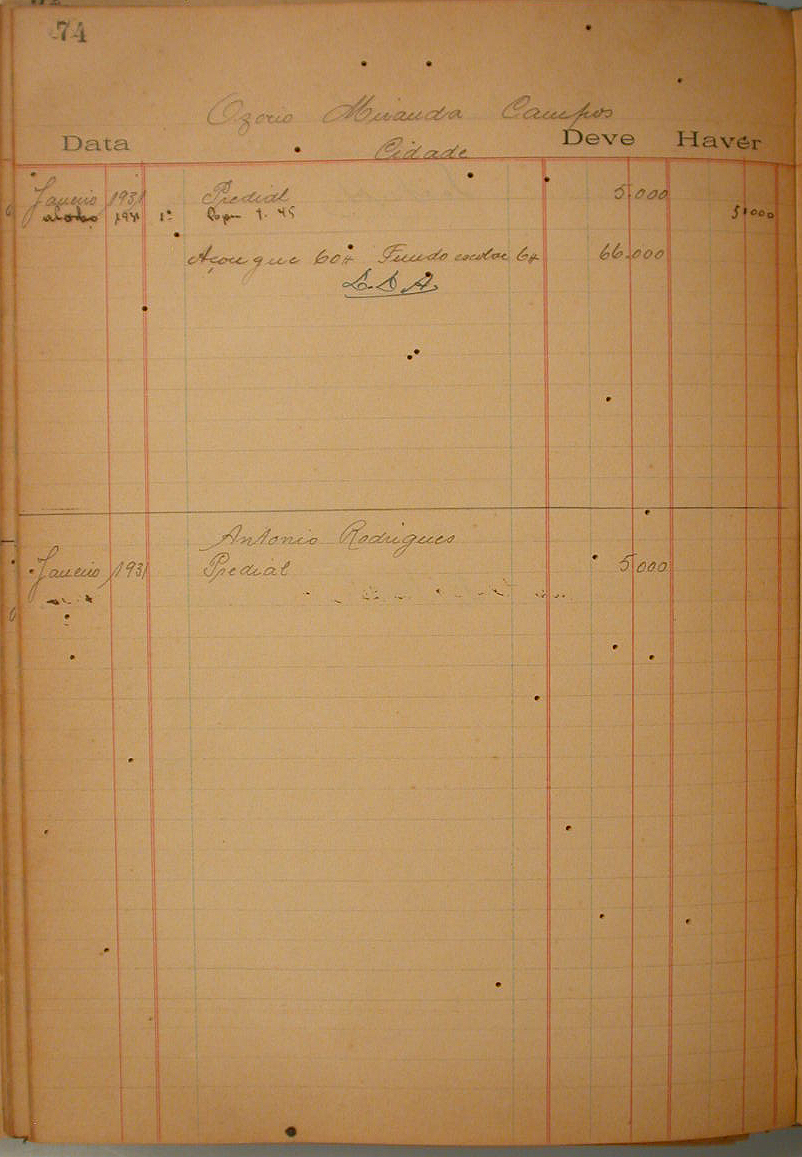 74
Ozorio Miranda Campos
Data Deve Haver
Cidade
Janeiro 1931 Predial 5.000
1931 1º 5.000
Açougue 60$ Fundo escolar 6$ 66.000
L.D.A.
Antonio Rodrigues
Janeiro 1931 Predial 5.000